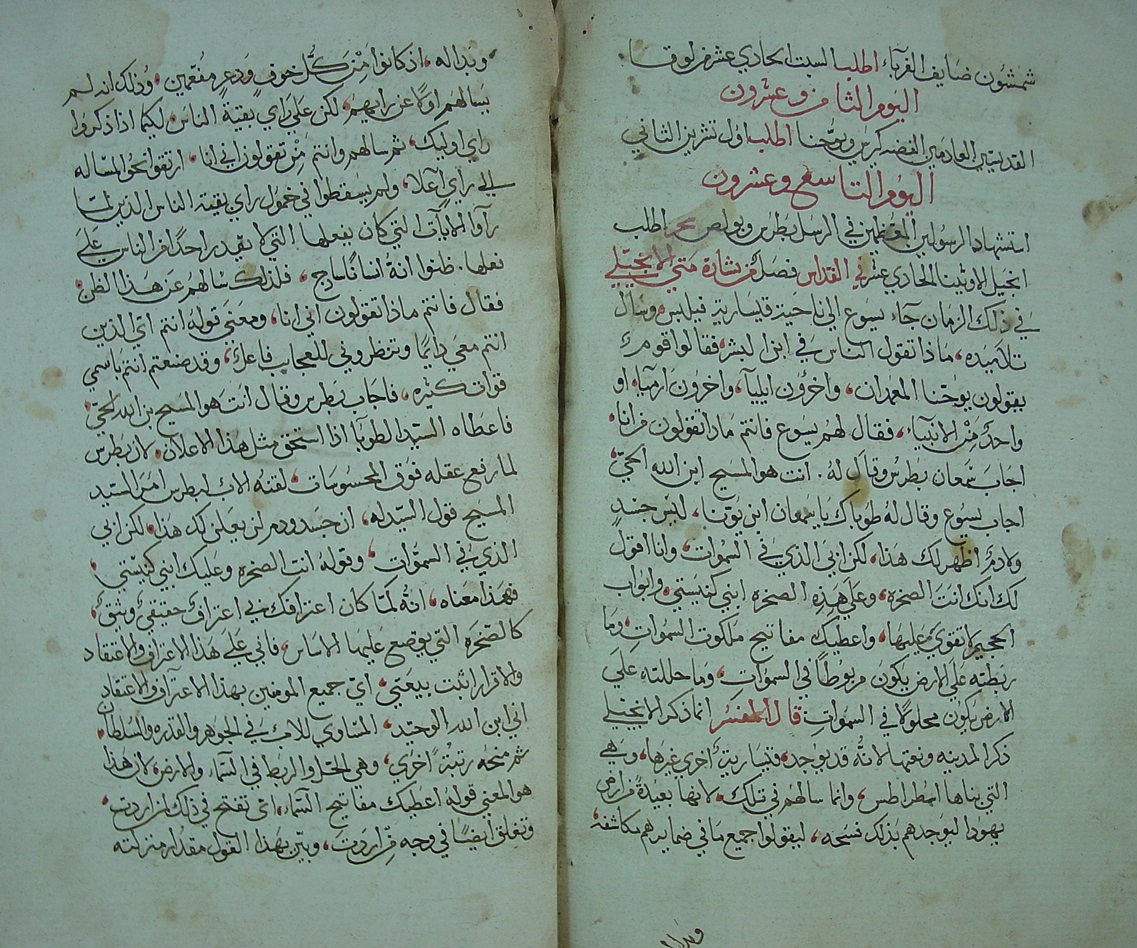 شمشون ضايف الغرباء، اطلب السبت الحادي عشر من لوقا
اليوم الثامن وعشرون
القديسين العادمين الفضه كرس ويوحنا اطلب اول تشرين الثاني
اليوم التاسع وعشرون
استشهاد الرسولين المعظمين في الرسل بطرس وبولص سحر اطلب
انجيل الاوثينا الحادي عشر في القداس فصل من بشارة متي الانجيلي
في ذلك الزمان جآء يسوع الي ناحية قيسارية فيلبس، وسال
تلاميذه، ماذا تقول الناس في ابن البشر، فقالوا قومٌ
يقولون يوحنا المعمدان، واخرون ايليا، واخرون ارميا، او
واحدٌ من الانبيآء، فقال لهم يسوع فانتم ماذا تقولون من انا،
اجاب شمعان بطرس وقال له، انت هو المسيح ابن الله الحيّ،
اجاب يسوع وقال له طوباك يا سمعان ابن يونا، ليس جسدٍ
ولا دم اظهر لك هذا، لكن ابي الذي في السموات، وانا اقول
لك انك انت الصخرة، وعلي هذه الصخره ابني كنيستي، وابواب
الجحيم لا تقوي عليها، واعطيك مفاتيح ملكوت السموات، وما
ربطته علي الارض يكون مربوطًا في السموات، وما حللته علي
الارض يكون محلولًا في السموات قال المفسّر انما ذكر الانجيلي
ذكر المدينه ونعتها لانّه قد يوجد، قيسارية اخري غيرها، وهي
التي بناها اسطراطس، وانما سالهم في تلك، لانها بعيدةً من ارض
يهودا ليوجدهم بذلك فسحه، ليقولوا جميع ما في ضمايرهم مكاشفة
وبداله، اذ كانوا من كلّ خوفٍ ودعرٍ منعمين، وذلك انه لم
يسالهم اولًا عن رايهم، لكن علي راي بقية الناس، لكيما اذا ذكروا
راي اوليك، ثم سالهم وانتم من تقولون اني انا، ارتقوا بحو المساله
الي راي اعلا، ولم يسقطوا في خمول راي بقية الناس الذين لمّا
رآوا الآيات التي كان يفعلها التي لا يقدر احدًا من الناس علي
فعلها، ظنوا انهُ انسانًا ساج، فلذلك سالهم عن هذا الظن،
فقال فانتم ماذا تقولون اني انا، ومعني قوله انتم اي الذين
انتم معي دايمًا وتنظروني للعجايب فاعلًا، وقد صنعتم انتم باسمي
قوات كثيره، فاجاب بطرس وقال انت هو المسيح بن الله الحيّ،
فاعطاه السيّد الطوبا اذا استحق مثل هذا الاعلان، لان بطرس
لما رفع عقله فوق المحسوسات، لقنه الاب لبطرس السيد
المسيح قول السيّد له، ان جسد ودم لن يعلن لك هذا، لكن ابي
الذي في السموات، وقوله انت الصخره وعليك ابني كنيستي،
فهذا معناه، انّه لمّا كان اعترافك في اعتراف حقيقي ونقي،
كالصخره التي يوضع عليها الاساس، فاني علي هذا الاعتراف والاعتقاد
والاقرار اثبت بيعتي، اي جميع المومنين بهذا الاعتراف والاعتقاد
اني ابن الله الوحيد، المتاوي للاب في الجوهر والقدره والسلطان
ثم منحه رتبةً اخري، وهي الحل والربط في السماء والارض، لان هذا
هو المعني قوله اعطيك مفاتيح السماء، اي تفتح في ذلك لمن اردت،
وتغلق ايضًا في وجه من اردت، وبيّن بهذا القول مقدار منزلته